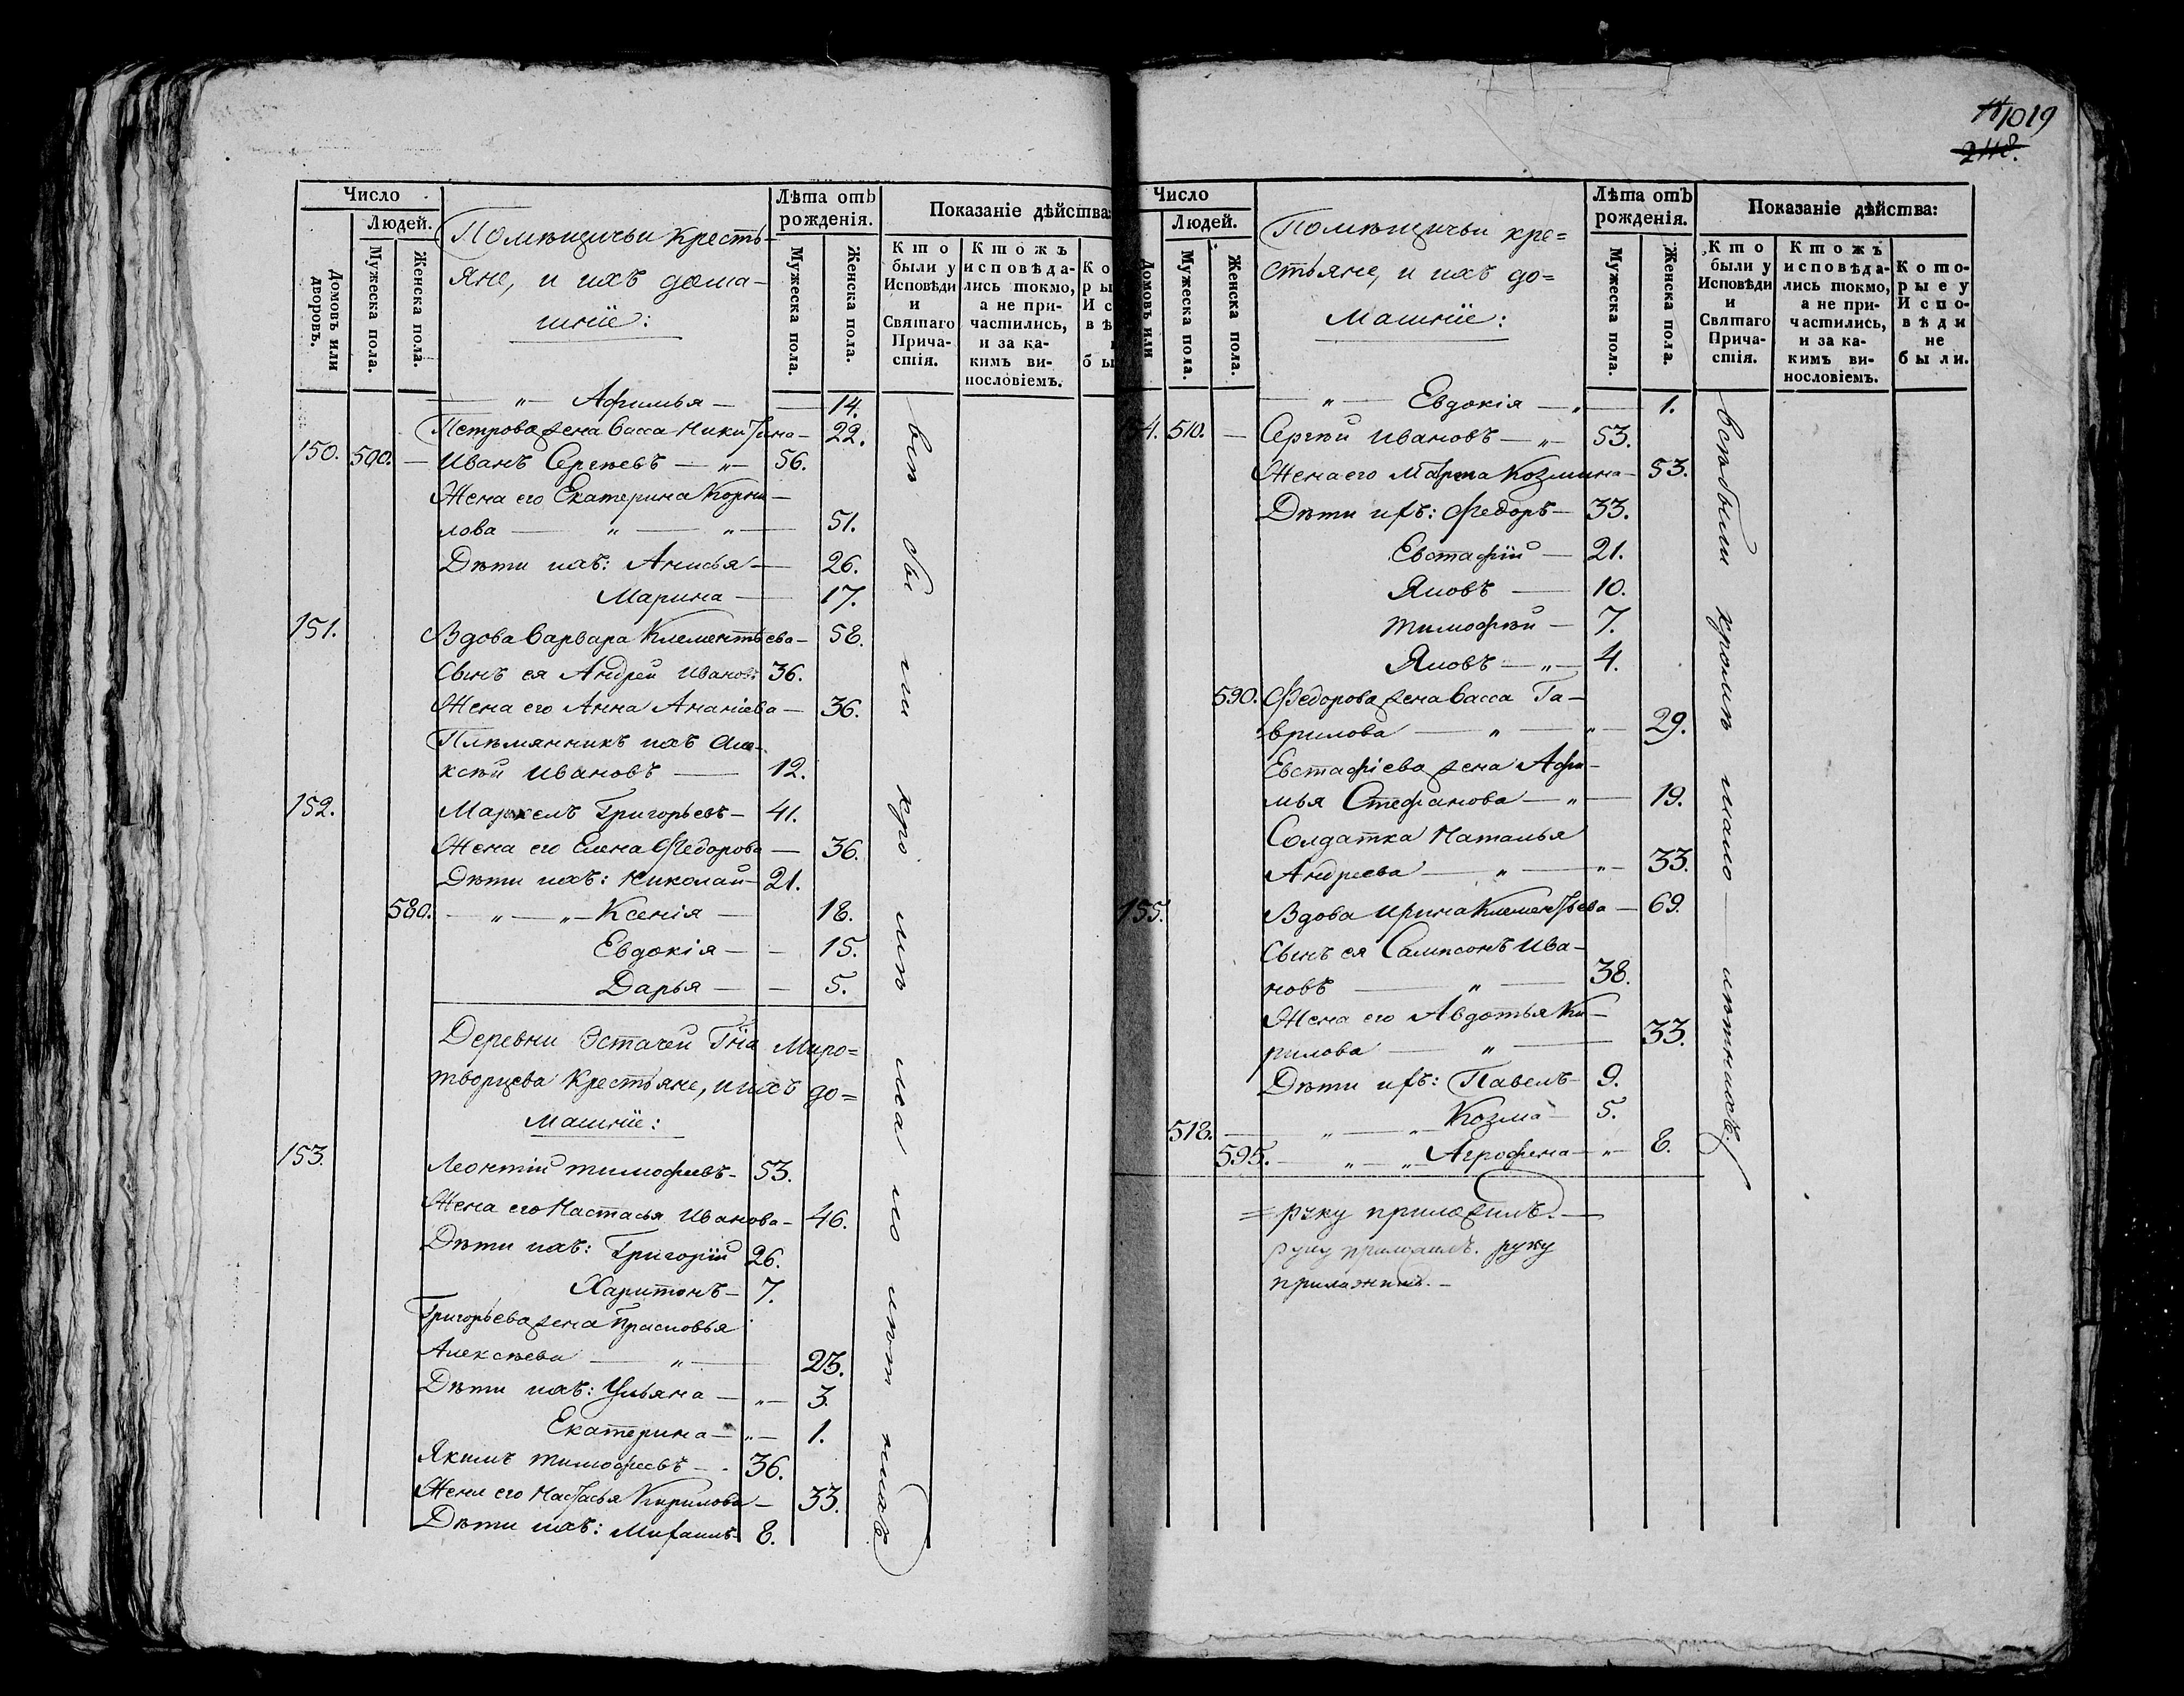 Число
Людей.
Домовъ или дворовъ.
Мужеска пола.
Женска пола.
Помѣщичьи Кресть-
яне, и ихъ дома-
шнїе:
Лѣта отъ
рожденія.
Мужеска пола.
Женска пола.
Показаніе дѣйства:
Кто
были у
Исповѣди
и
Святаго
Прича-
стія.
Ктожъ
исповѣда-
лись токмо,
а не при-
частились,
и за ка-
кимъ ви-
нословіемъ.
— „ — Афимья — 14.
Петрова жена Васса Никитина — 22.
150. 500. — Иванъ Сергѣевъ — „ — 56.
Жена его Екатерина Корни-
лова — „ — „ — 51.
Дѣти ихъ: Анисья — 26.
Марина — 17.
151. Вдова Варвара Клементьева — 58.
Сынъ ея Андрей Ивановъ 36.
Жена его Анна Ананіева — 36.
Племянникъ ихъ Але-
ксѣй Ивановъ — 12.
152. Маркелъ Григорьевъ — 41.
Жена его Елена Федорова — 36.
Дѣти ихъ: Николай — 21.
580. — „ — „ — Ксенія — 18.
Евдокія — — 15.
Дарья — — 5.
Деревни Эстачей Гна Миро=
творцева Крестьяне, и ихъ до=
машнїе:
153. Леонтій Тимофеевъ — 53.
Жена его Настасья Иванова — 46.
Дѣти ихъ: Григорій 26.
Харитонъ — 7.
Григорьева жена Прасковья
Алексѣева — „ — 23.
Дѣти ихъ: Ульяна — „ — 3.
Екатерина — „ — 1.
Якимъ Тимофеевъ — 36.
Жена его Настасья Кирилова — 33.
Дѣти ихъ: Михаилъ — 8.
всѣ были кромѣ малолѣтнихъ.
1019
248.
Число
Людей.
Домовъ или
Мужеска пола.
Женска пола.
Помѣщичьи кре=
стьяне, и ихъ до=
машнїе:
Лѣта отъ
рожденія.
Мужеска пола.
Женска пола.
Показаніе дѣйства:
Кто
были у
Исповѣди
и
Святаго
Прича-
стія.
Ктожъ
исповѣда-
лись токмо,
а не при-
частились,
и за ка-
кимъ ви-
нословіемъ.
Кото-
рые у
Испо-
вѣди
не
были.
— „ — Евдокія — „ — 1.
4. 510. — Сергѣй Ивановъ — „ — 53.
Жена его Марфа Козмина — 53.
Дѣти ихъ: Федоръ — 33.
Евстафїй — 21.
Яковъ — 10.
Тимофѣй — 7.
Яковъ — „ — 4.
590. Федорова жена Васса Га-
врилова — „ — „ — 29.
Евстафіева жена Афи-
мья Стефанова — „ — 19.
Солдатка Наталья
Андреева — „ — „ — 33.
155. Вдова Ирина Клементьева — 69.
Сынъ ея Сампсонъ Ива-
новъ — „ — 38.
Жена его Авдотья Ки-
рилова — „ — 33.
Дѣти ихъ: Павелъ — 9.
518. — „ — „ Козма — 5.
595. — „ — „ Агрофена — „ — 8.
всѣ были кромѣ мало — лѣтнихъ.
= руку приложилъ. —
руку приложилъ. руку
приложилъ. —